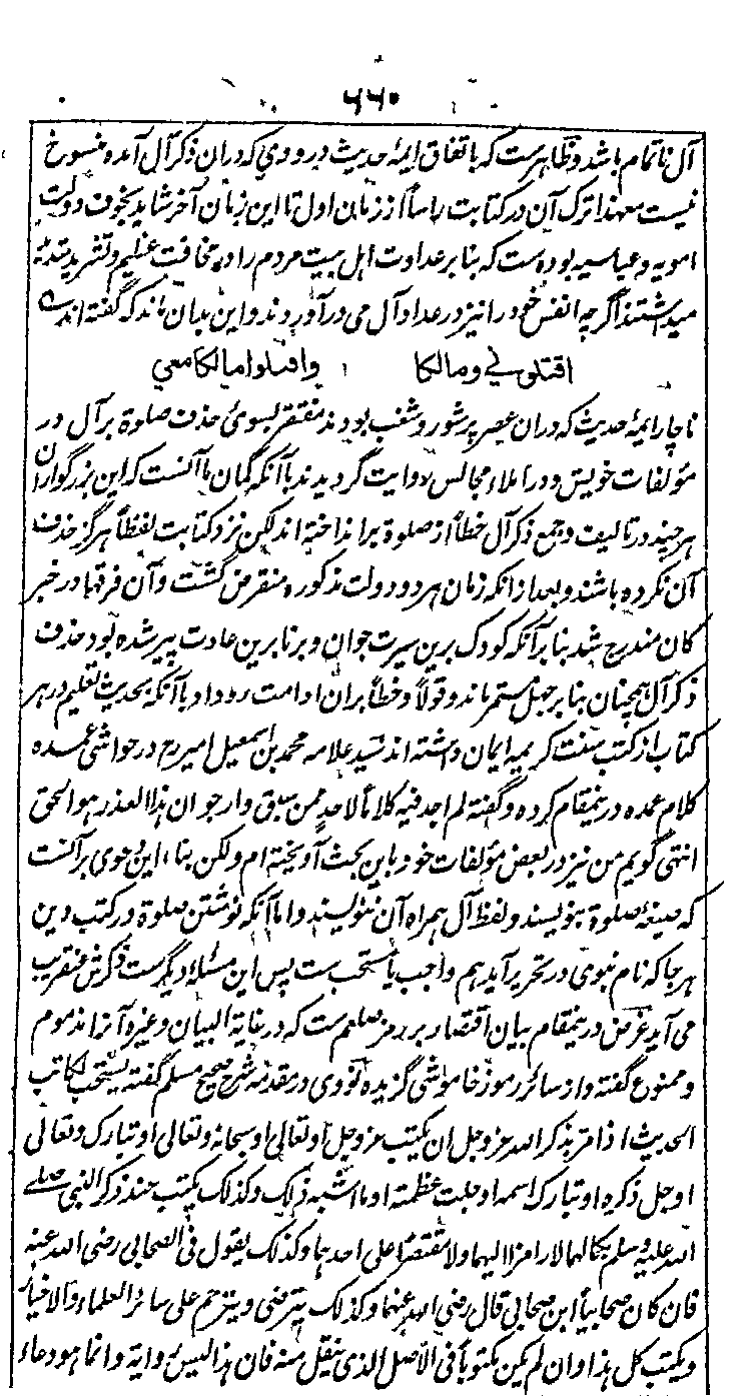 ۶۶۰
آل ناتمام باشد و ظاهرست که باتفاق ایمهٔ حدیث درودی که دران ذکر آل آمده منسوخ
نیست معهذا ترک آن در کتابت راساً از زمان اول تا این زمان آخر شاید بخوف دولت
امویه و عباسیه بوده ست که بنا بر عداوت اهل بیت مردم را در مخافت عظیم و تشرید
میداشتند اگرچه انفس خود را نیز در عداد آل می درآوردند و این بیان ماند که گفته اند
اقتلونی ومالکا واقتلوا مالکا معی
ناچار ایمهٔ حدیث که دران عصر پر شور و شغب بودند مفتقر بسوی حذف صلوة بر آل در
مؤلفات خویش و در املاء مجالس روایت گردیدند با آنکه گمان ما آنست که این بزرگواران
هر چند در تالیف و جمع ذکر آل خطاً از صلوة برانداخته اند لکن نزد کتابت لفظاً هرگز حذف
آن نکرده باشند و بعد ازانکه زمان هر دو دولت مذکوره منقرض گشت و آن فرقها در خبر
کان مندرج شد بنا بر آنکه کودک برین سیرت جوان و برنا برین عادت پیر شده بود حذف
ذکر آل همچنان بنا بر جهل مستمر ماند و قولاً و خطاً بران ادامت رو داد با آنکه بحدیث تعلیم در هر
کتاب از کتب سنت کریمه ایمان داشته اند سید علامه محمد بن اسمعیل امیر رح در حواشی عمده
کلام عمده درینمقام کرده و گفته لم اجد فیه کلاماً لاحدٍ ممن سبق وارجو ان هذا العذر هو الحق
انتهی گویم من نیز در بعض مؤلفات خود باین بحث آویخته ام ولکن بناء این دعوی بر آنست
که صیغهٔ صلوة بنویسند و لفظ آل همراه آن ننویسند و اما آنکه نوشتن صلوة در کتب دین
هر جا که نام نبوی در تحریر آید هم واجب یا مستحب ست پس این مسئلهٔ دیگرست ذکرش عنقریب
می آید غرض درینمقام بیان اقتصار بر رمز صلعم ست که در غایة البیان و غیره آنرا مذموم
و ممنوع گفته و از سائر رموز خاموشی گزیده نووی در مقدمهٔ شرح صحیح مسلم گفته یستحب لکاتب
الحدیث اذا مر بذکر الله عز وجل ان یکتب عز وجل او تعالی او سبحانه وتعالی او تبارک وتعالی
او جل ذکره او تبارک اسمه او جلت عظمته او ما اشبه ذلک وکذلک یکتب عند ذکر النبی صلی
الله علیه وسلم بکمالهما لا رامزا الیهما ولا مقتصرا علی احدهما وکذلک یقول فی الصحابی رضی الله عنه
فان کان صحابیاً ابن صحابی قال رضی الله عنهما وکذلک یترضی ویترحم علی سائر العلماء والاخیار
ویکتب کل هذا وان لم یکن مکتوباً فی الاصل الذی ینقل منه فان هذا لیس روایة وانما هو دعاء